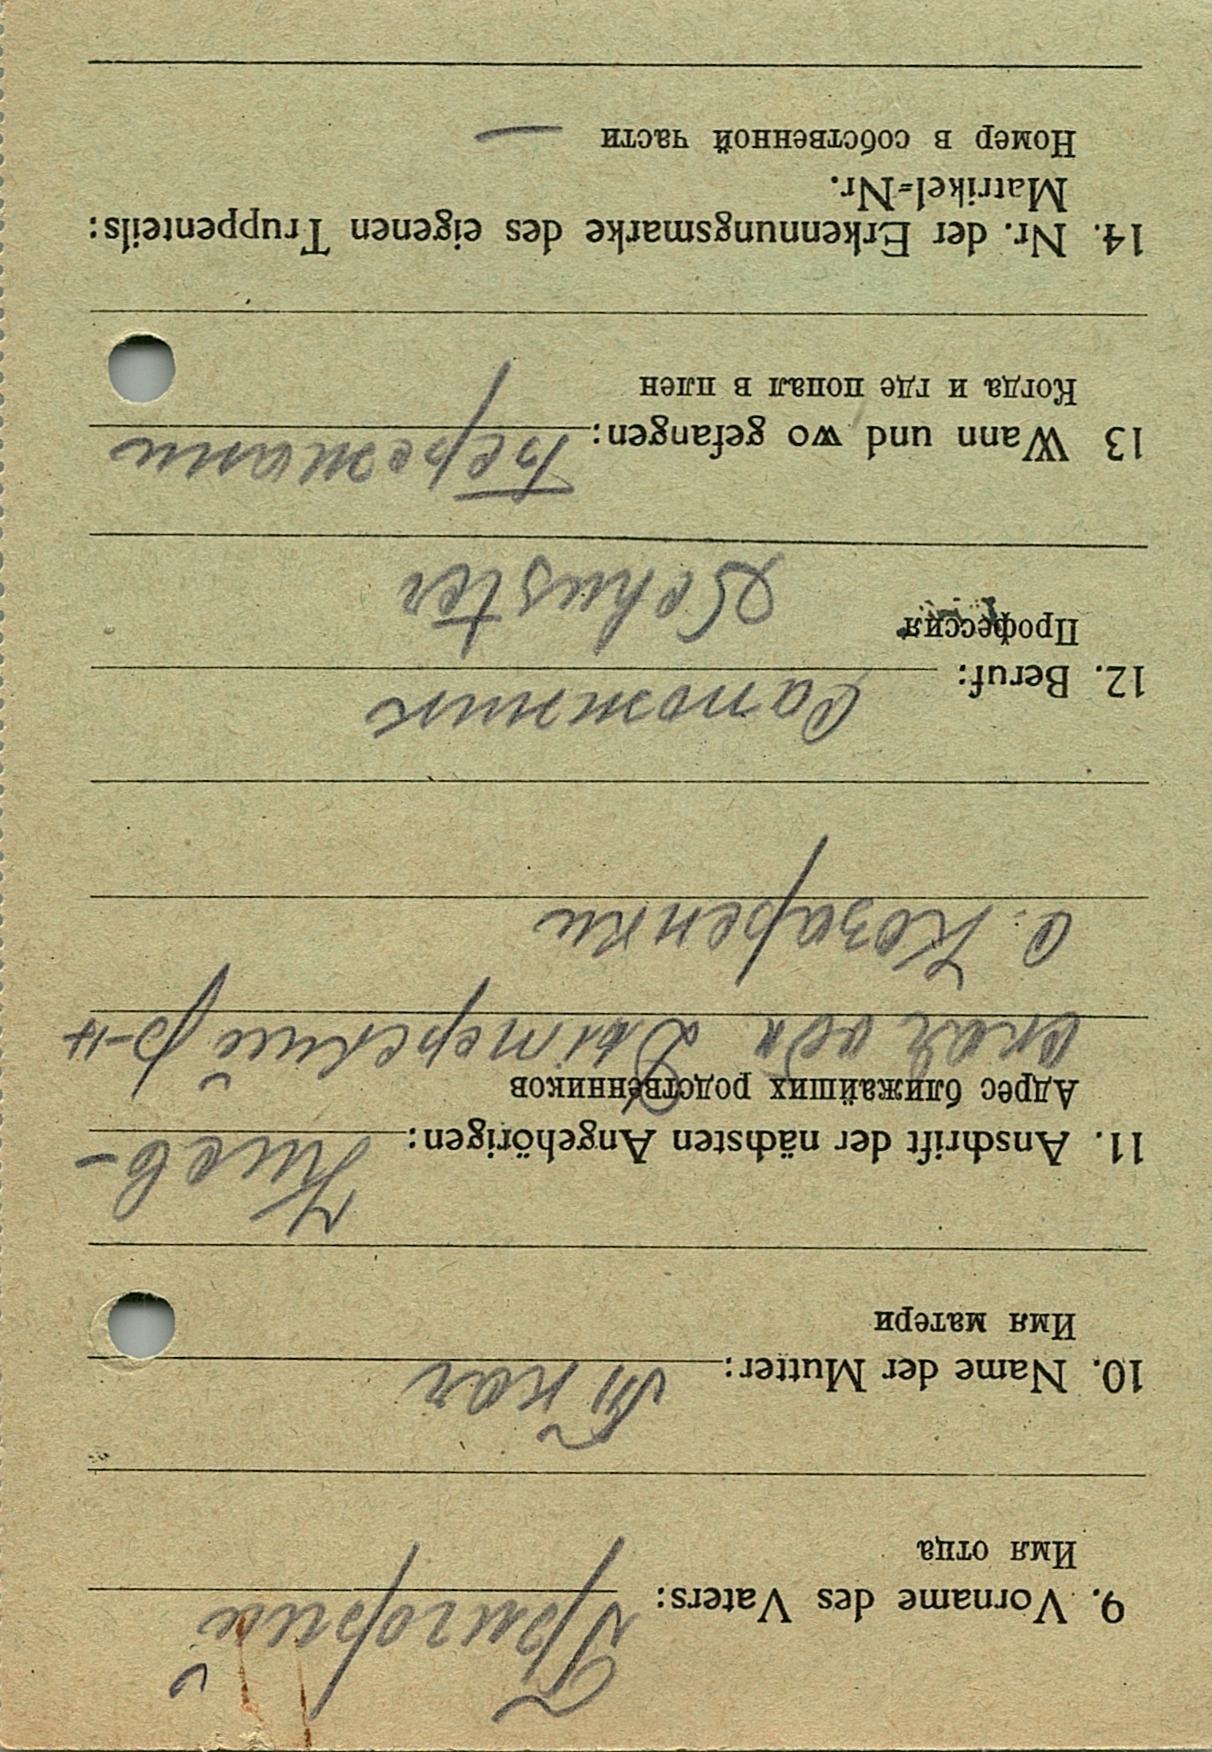 9. Vorname des Vaters: Григорий
Имя отца
10. Name der Mutter:
Имя матери
11. Anschrift der nächsten Angehörigen: Киев-
Адрес ближайших родственников
ская обл Дымерский р-н
с. Козаренки
12. Beruf: Сапожник
Профессия Schuster
13 Wann und wo gefangen: Бережани
Когда и где попал в плен
14. Nr. der Erkennungsmarke des eigenen Truppenteils:
Matrikel=Nr.
Номер в собственной части —